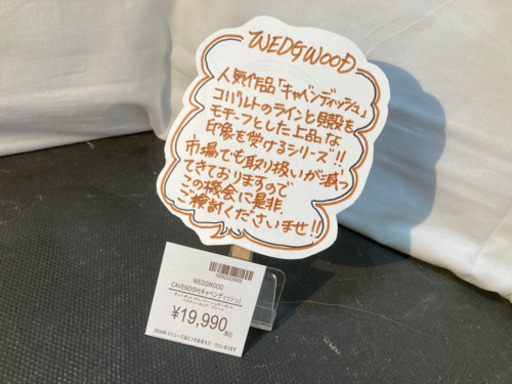 WEDGWOOD
人気作品「キャベンディッシュ」
コバルトのラインと貝殻を
モチーフとした上品な
印象を受けるシリーズ!!
市場でも取り扱いが減っ
てきておりますので
この機会に是非
ご検討くださいませ!!
WEDGWOOD
CAVENDISH(キャベンディッシュ)
¥19,990